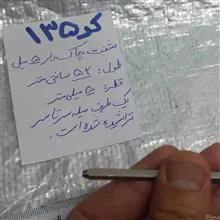 کد ۱۳۵
شفت چاک دار ۵ میل
طول: ۵۲ سانتی متر
قطر: ۵ میلی متر
یک طرف میله سرتاسر
تراشیده شده است.